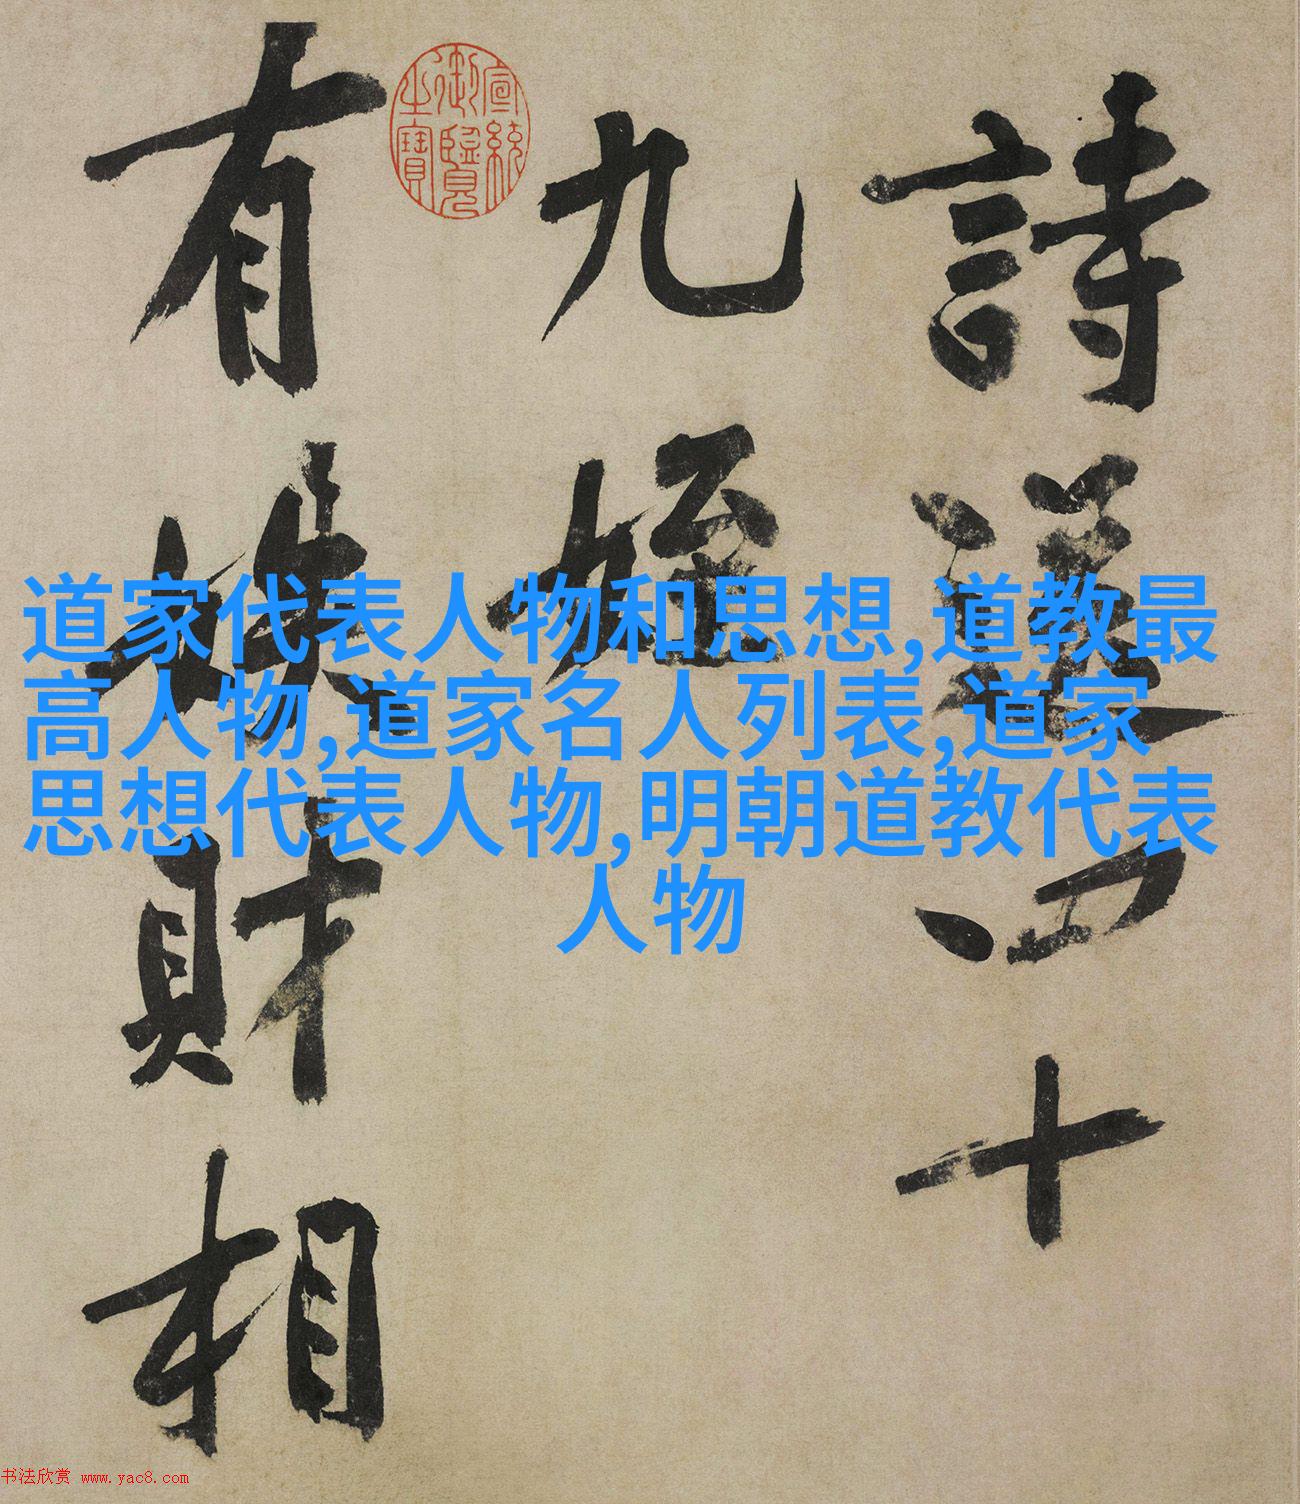 道家代表人物和思想,道教最
高人物,道家名人列表,道家
思想代表人物,明朝道教代表
人物
詩送四十
九姪
宣統
御覽
之寶
有 財相
书法欣赏 www.yac8.com